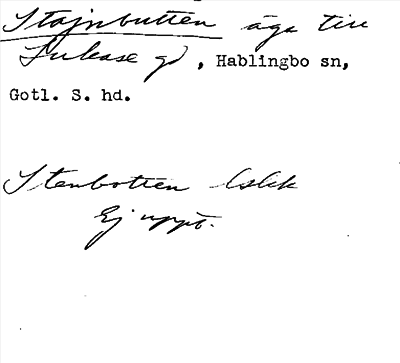 Stajnbutten äga till
Lukase gd, Hablingbo sn,
Gotl. S. hd.
Stenbotten lskk
Ej uppt.